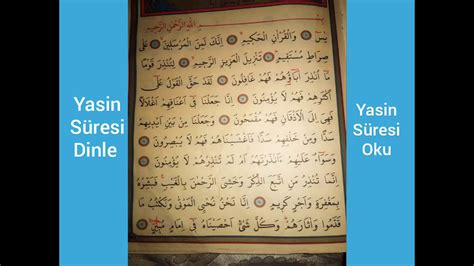 Yasin
Süresi
Dinle
بِسْمِ اللّٰهِ الرَّحْمٰنِ الرَّحِيمِ
يٰسٓ ۞ وَالْقُرْاٰنِ الْحَكِيمِ ۞ اِنَّكَ لَمِنَ الْمُرْسَلِينَ ۞ عَلٰى
صِرَاطٍ مُسْتَقِيمٍ ۞ تَنْزِيلَ الْعَزِيزِ الرَّحِيمِ ۞ لِتُنْذِرَ قَوْمًا
مَا اُنْذِرَ اٰبَاؤُهُمْ فَهُمْ غَافِلُونَ ۞ لَقَدْ حَقَّ الْقَوْلُ عَلٰى
اَكْثَرِهِمْ فَهُمْ لَا يُؤْمِنُونَ ۞ اِنَّا جَعَلْنَا فِى اَعْنَاقِهِمْ اَغْلَالًا
فَهِىَ اِلَى الْاَذْقَانِ فَهُمْ مُقْمَحُونَ ۞ وَجَعَلْنَا مِنْ بَيْنِ اَيْدِيهِمْ
سَدًّا وَمِنْ خَلْفِهِمْ سَدًّا فَاَغْشَيْنَاهُمْ فَهُمْ لَا يُبْصِرُونَ ۞
وَسَوَاءٌ عَلَيْهِمْ ءَاَنْذَرْتَهُمْ اَمْ لَمْ تُنْذِرْهُمْ لَا يُؤْمِنُونَ ۞
اِنَّمَا تُنْذِرُ مَنِ اتَّبَعَ الذِّكْرَ وَخَشِىَ الرَّحْمٰنَ بِالْغَيْبِ فَبَشِّرْهُ
بِمَغْفِرَةٍ وَاَجْرٍ كَرِيمٍ ۞ اِنَّا نَحْنُ نُحْيِى الْمَوْتٰى وَنَكْتُبُ مَا
قَدَّمُوا وَاٰثَارَهُمْ وَكُلَّ شَىْءٍ اَحْصَيْنَاهُ فِى اِمَامٍ مُبِينٍ ۞
Yasin
Süresi
Oku